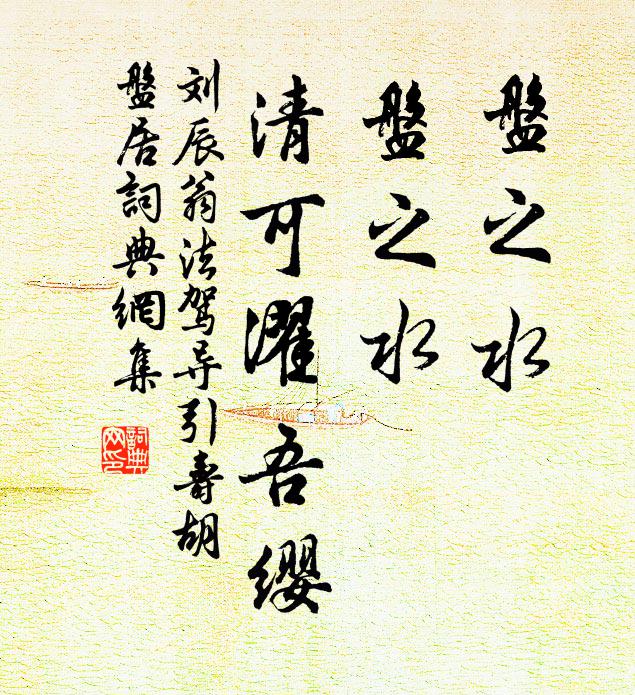 盤之水
盤之水
清可濯吾缨
刘辰翁法驾导引寿胡
盤居詞典網集
詞典
网印